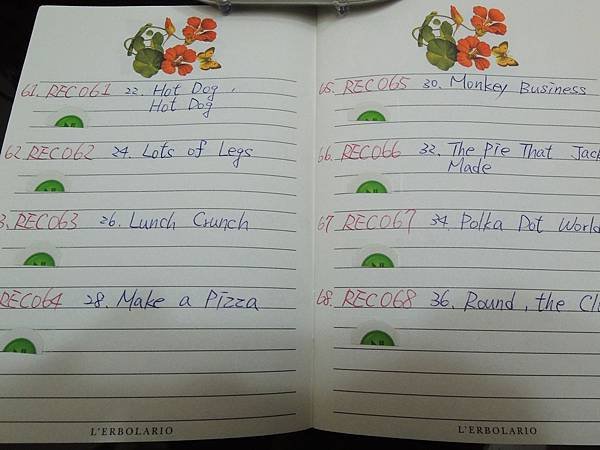 61. REC061 22. Hot Dog,
Hot Dog
62 REC062 24. Lots of Legs
3. REC063 26. Lunch Crunch
REC064 28. Make a Pizza
L'ERBOLARIO
65. REC065 30. Monkey Business
66. REC066 32. The Pie That Jack
Made
67 REC067 34. Polka Dot World
68. REC068 36. Round, the Cl
L'ERBOLARIO